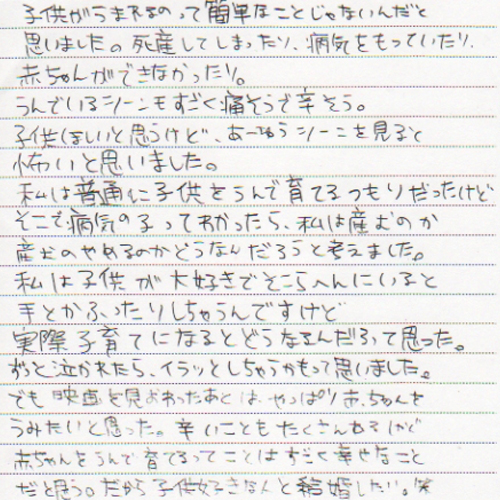 子供がうまれるのって簡単なことじゃないんだと
思いました。死産してしまったり、病気をもっていたり、
赤ちゃんができなかったり。
うんでいるシーンもすごく痛そうで辛そう。
子供ほしいと思うけど、あーゆうシーンを見ると
怖いと思いました。
私は普通に子供をうんで育てるつもりだったけど
そこで病気の子ってわかったら、私は産むのか
産むのやめるのかどうなんだろうと考えました。
私は子供が大好きでそこらへんにいると
手とかふったりしちゃうんですけど
実際子育てになるとどうなるんだろって思った。
ずっと泣かれたら、イラッとしちゃうかもって思いました。
でも映画を見おわったあとは、やっぱり赤ちゃんを
うみたいと思った。辛いこともたくさんあるけど
赤ちゃんをうんで育てるってことはすごく幸せなこと
だと思う。だから子供好きなんと結婚したい。笑